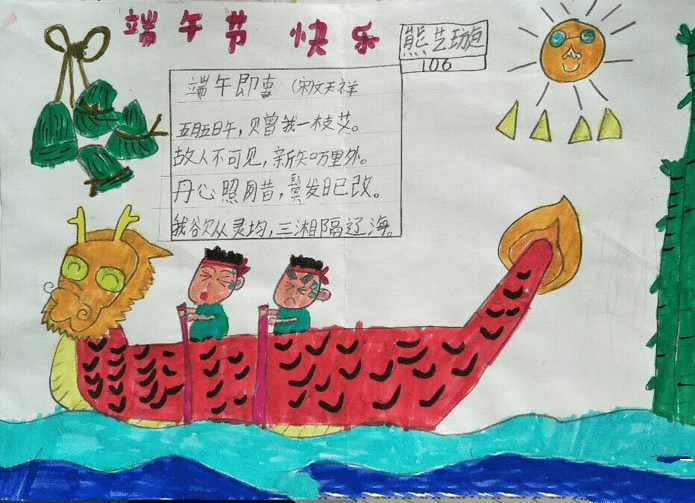 端午节 快乐
熊艺璇
106
端午即事 (宋文天祥
五月五日午，贝曾我一枝艾。
故人不可见，新知万里外。
丹心照夙昔，鬓发日已改。
我欲从灵均，三湘隔辽海。